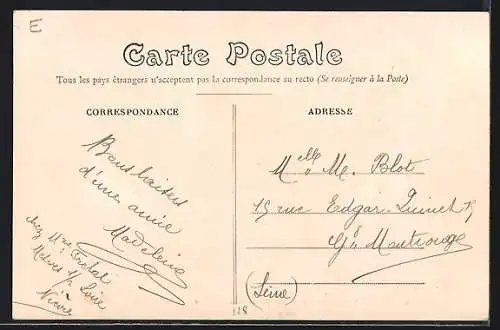 E
Carte Postale
Tous les pays étrangers n'acceptent pas la correspondance au recto (Se renseigner à la Poste)
CORRESPONDANCE
Bons baisers
d'une amie
Madeleine
chez Mme
Loire
Nièvre
ADRESSE
Melle M. Blot
15 rue Edgar Quinet 15
Gd Montrouge
(Seine)
118